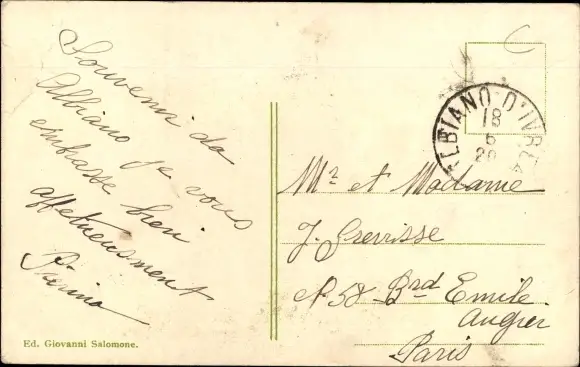 Souvenir da
Albiano je vous
embrasse bien
affetueusment
Pierina
ALBIANO D'IVREA
18
6
20
Mr et Madame
J. Grevisse
N 58 Brd Emile
Augier
Paris
Ed. Giovanni Salomone.